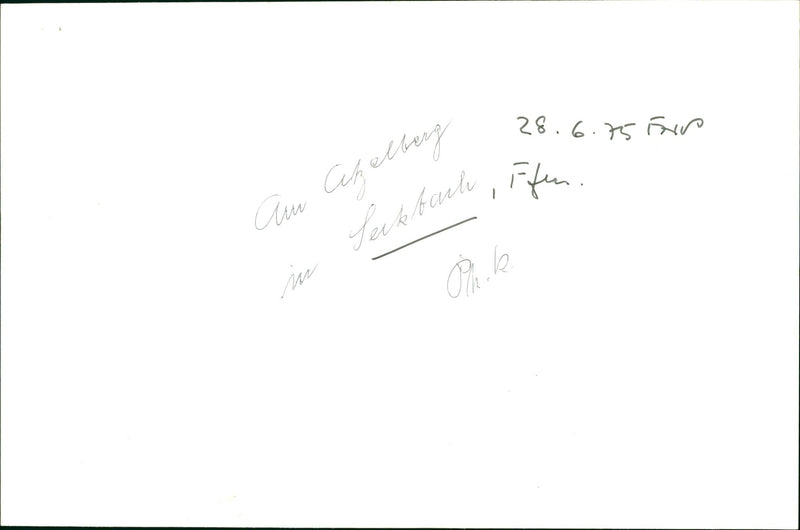 28. 6. 75
Am Atzelberg
in Seckbach, Ffm.
Ph. K.